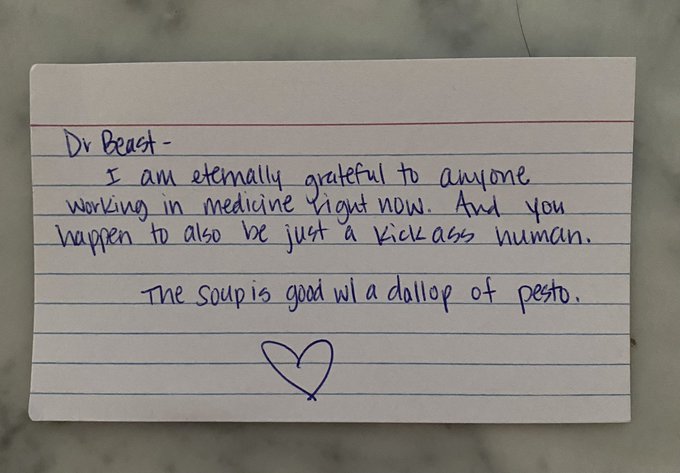 Dr Beast-
I am eternally grateful to anyone
working in medicine right now. And you
happen to also be just a kickass human.
The soup is good w/ a dallop of pesto.